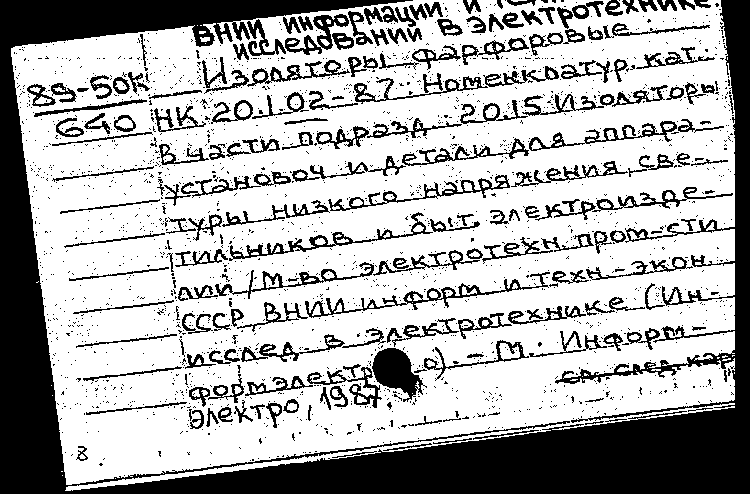 ВНИИ информации и техн
исследований в электротехнике.
Изоляторы фарфоровые.
89-50к
640
НК 20.1.02-87: Номенклатур. кат.:
В части подразд. 20.15 Изоляторы
установоч и детали для аппара-
туры низкого напряжения, све-
тильников и быт. электроизде-
лий / М-во электротехн. пром-сти
СССР, ВНИИ информ и техн.-экон.
исслед. в электротехнике (Ин-
формэлектро). - М.: Информ-
электро, 1987.
см. след. кар
8.